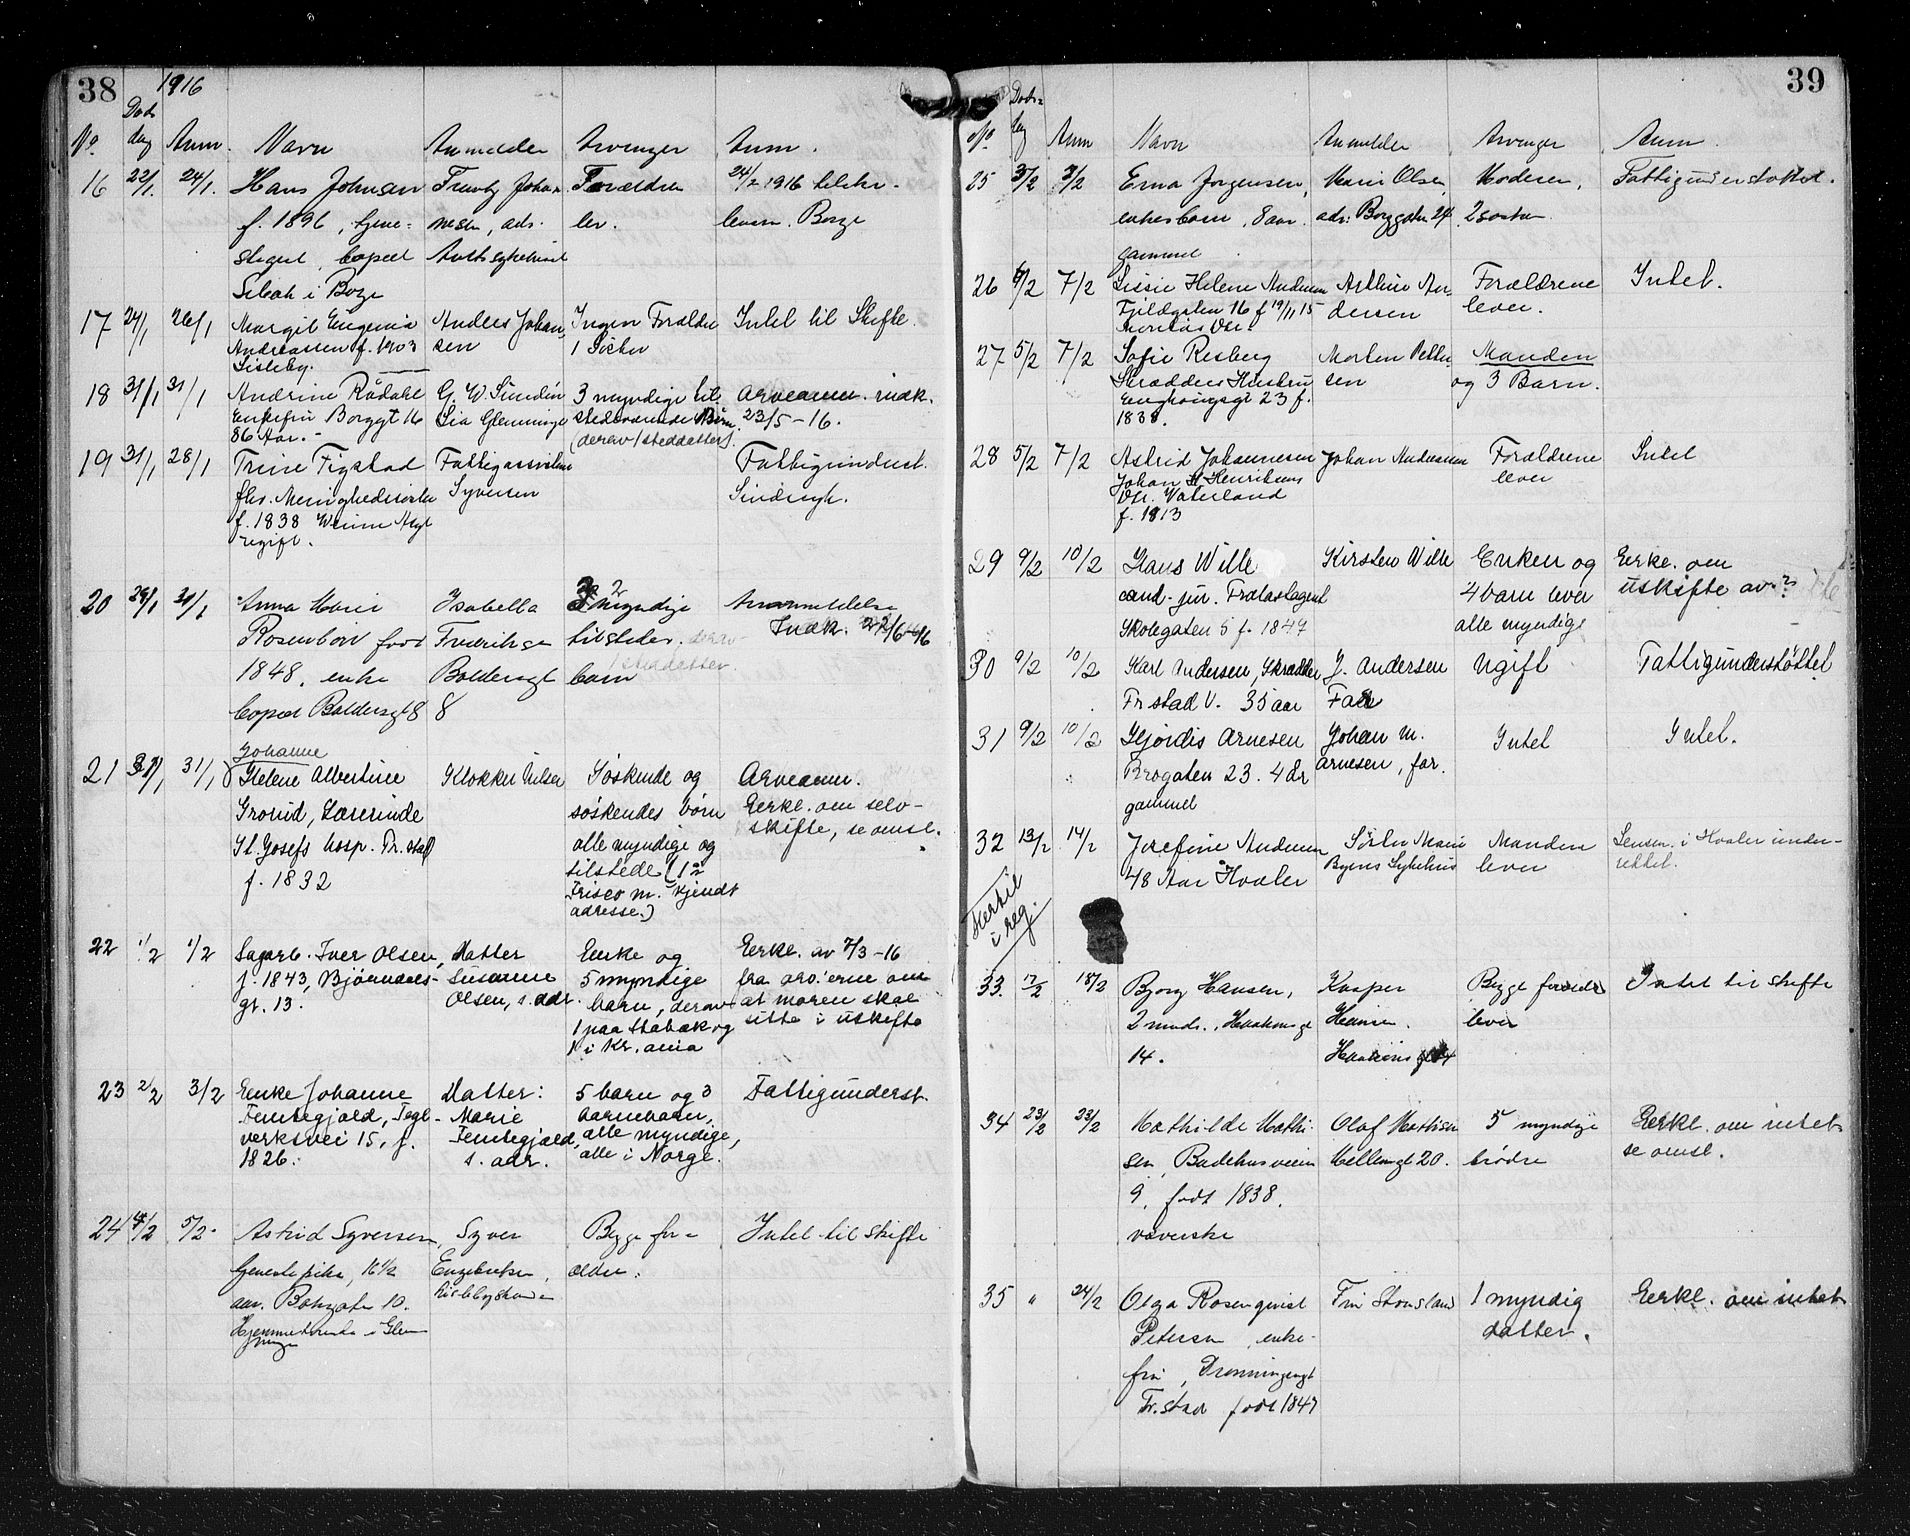 38 1916
Døds
No. dag Anm. Navn Anmelder Arvinger Anm.
16 22/1. 24/1. Hans Johnsen Johan- Forældre 24/2 1916 tilskr.
f. 1896, tjene- nesen, adr. lev. levem. Borge
stegut, Amtssykehuset
i Borge
17 24/1 26/1 Margit Eugenia Anders Johan- Ingen Forældre Intet til Skifte.
Andreassen f. 1903 sen 1 Søster
Lisleby.
18 31/1 31/1 Andrine Rådahl G. W. Sundin 3 myndige til- Arveanm. indk.
Enkefru Borggt 16 Glemminge stedværende Børn 23/5-16.
86 Aar.- (derav 1 steddatter).
19 31/1 28/1 Trine Figstad Fattigforst. Fattigunderst.
fhv. Menighedssøster Syversen
f. 1838
ugift.
20 29/1 31/1 Anna Marie Isabella 2 myndige
Rosenborn født Fredrikke tilsteder. derav Indk. 27/6-16
1848, enke Boldersgt barn 1 steddatter.
Boldersgt 8 8
Johanne
21 31/1 31/1 Helene Albertine Klokker Nilsen Søskende og Arveanm.
Grorud, Lærerinde søskendes børn Erkl. om selv-
St. Josefs hosp. Fr.stad alle myndige og skifte, se omsl.
f. 1832 tilstede (1 i
Frisco m. kjendt
adresse.)
22 1/2 1/2 Sagarb. Iver Olsen, Datter Enke og Erkl. av 7/3-16
f. 1843, Bjørneveis- Susanne 5 myndige fra arv.erne om
gt. 13. Olsen, s. adr. barn, derav at moren skal
1 paa Stabæk og sitte i uskifte
1 i Kr.ania
23 2/2 3/2 Enke Johanne Datter: 5 barn og 3 Fattigunderst.
Femtegjæld, Tegl- Marie barnebarn,
verksvei 15, f. Femtegjæld, alle myndige,
1826. s. adr. alle i Norge.
24 4/2 5/2. Astrid Syversen Syver Begge for- Intet til skifte
tjenestepike, 16 1/2 Engebretsen, ældre.
aar. 10.
Hjemmehørende i Glem-
minge
39
Døds-
No. dag Anm Navn Anmelder Arvinger Anm.
25 3/2 7/2 Erna Jørgensen, Marie Olsen, Moderen, Fattigunderstøttet.
enkesbarn, 8 aar adr: Borggaten 24. 2 søstre
gammel
26 6/2 7/2 Lissie Helene Andersen Arthur An- Forældrene Intet.
Fjeldgaten 16 f 19/11 15 dersen lever.
27 5/2 7/2 Sofie Risberg Morten Petter- Manden
Skrædders Hustru sen og 3 Barn.
23 f.
1838.
28 5/2 7/2 Astrid Johannesen Johan Andreassen Forældrene Intet
Johan H. Henriksens lever
Dtr. Vaterland
f. 1913
29 9/2 10/2 Hans Wille Kirsten Wille Enken og Erkl. om
cand. jur. 4 barn lever uskifte av
Skolegaten 5 f. 1849 alle myndige
30 9/2 10/2 Karl Andersen, Skrædder J. Andersen Ugift Fattigunderstøttet
Fr.stad V. 35 aar Far
31 9/2 10/2 Hjørdis Arnesen Johan M. Intet Intet.
Brogaten 23. 4 år Arnesen, far.
gammel
32 13/2 14/2 Josefine Andersen Søster Marie Manden Lensm. i Hvaler under-
48 Aar Hvaler Byens Sykehus lever rettet.
Hertil
i reg.
33. 17/2 18/2 Bjørg Hansen, Kasper Begge forældre Intet til skifte
2 mnds., Haakonsgt Hansen. lever
14. Haakonsgt 14
34 23/2 23/2 Mathilde Mathi- Olaf Mathisen 5 myndige Erkl. om intet
sen, Badehusveien Møllergt 20. brødre se omsl.
9, født 1838.
væverske
35 " 24/2 Olga Rosenqvist Fru 1 myndig Erkl. om intet
Petersen, enke- datter.
fru, Dronningensgt
Fr.stad født 1847